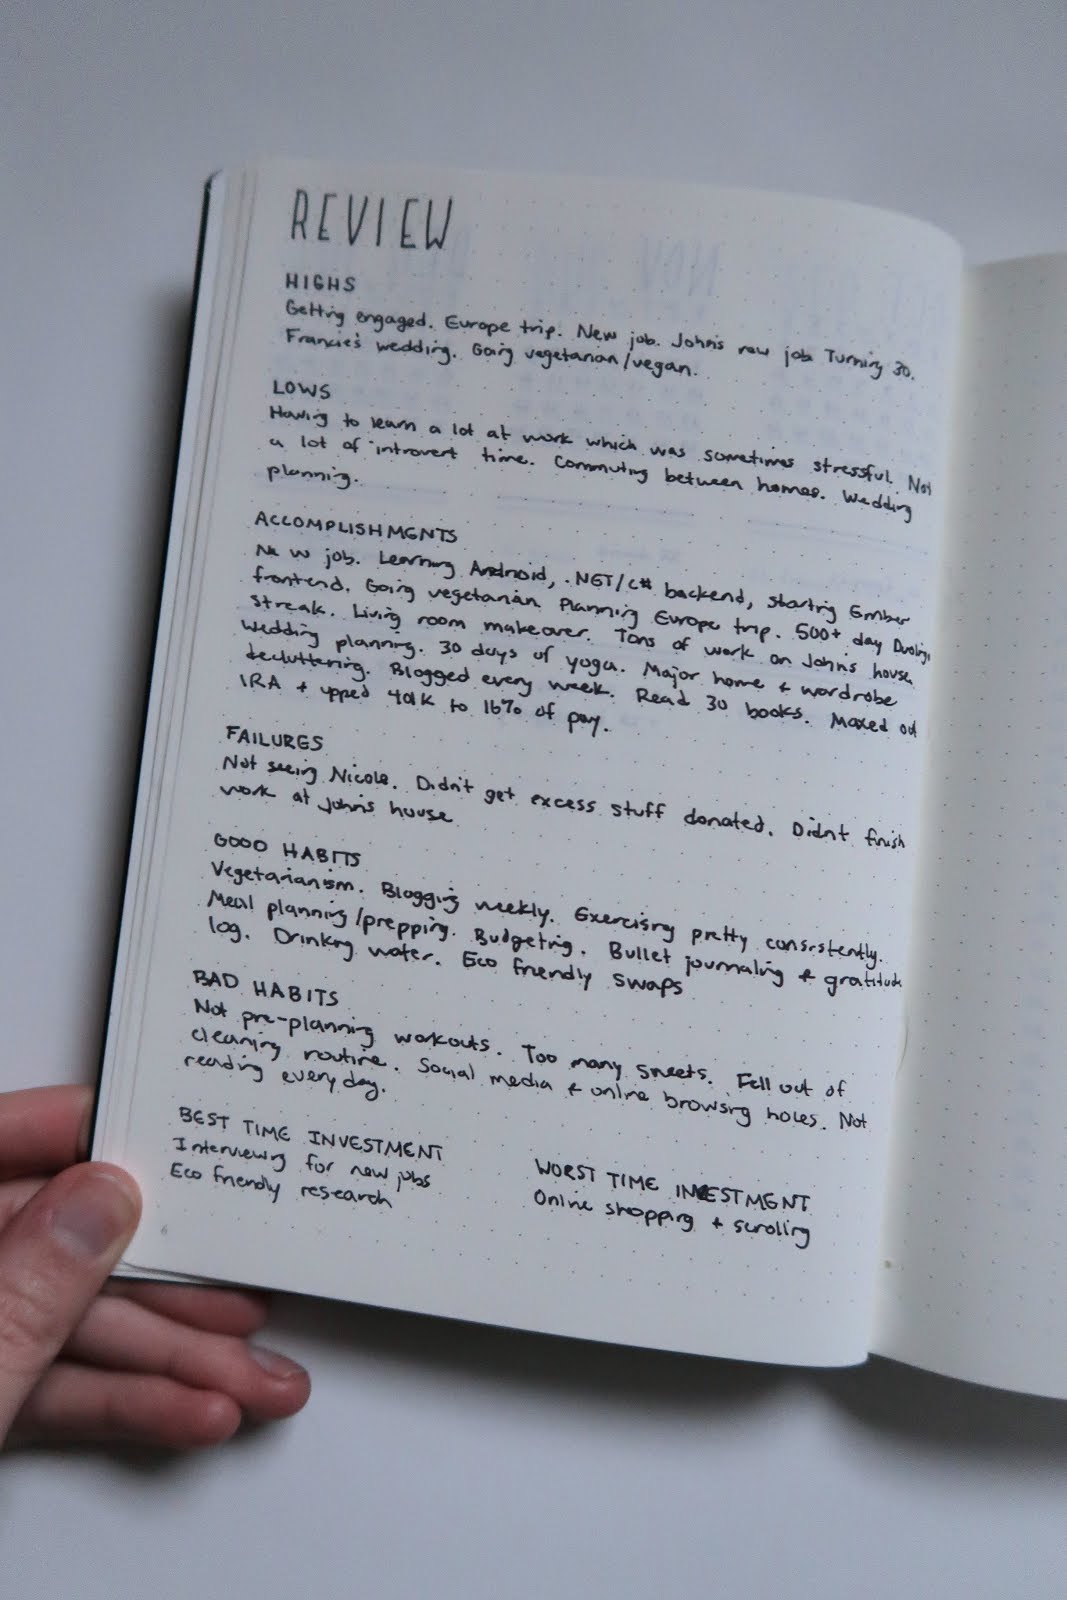 REVIEW
HIGHS
Getting engaged. Europe trip. New job. John's new job. Turning 30.
Francie's wedding. Going vegetarian/vegan.
LOWS
Having to learn a lot at work which was sometimes stressful. Not
a lot of introvert time. Commuting between homes. Wedding
planning.
ACCOMPLISHMENTS
New job. Learning Android, .NET/C# backend, starting Ember
frontend. Going vegetarian. Planning Europe trip. 500+ day Duolingo
streak. Living room makeover. Tons of work on John's house.
Wedding planning. 30 days of yoga. Major home + wardrobe
decluttering. Blogged every week. Read 30 books. Maxed out
IRA + upped 401k to 16% of pay.
FAILURES
Not seeing Nicole. Didn't get excess stuff donated. Didn't finish
work at John's house
GOOD HABITS
Vegetarianism. Blogging weekly. Exercising pretty consistently.
Meal planning/prepping. Budgeting. Bullet journaling + gratitude
log. Drinking water. Eco friendly swaps
BAD HABITS
Not pre-planning workouts. Too many sweets. Fell out of
cleaning routine. Social media + online browsing holes. Not
reading every day.
BEST TIME INVESTMENT
Interviewing for new jobs
Eco friendly research
WORST TIME INVESTMENT
Online shopping + scrolling
6